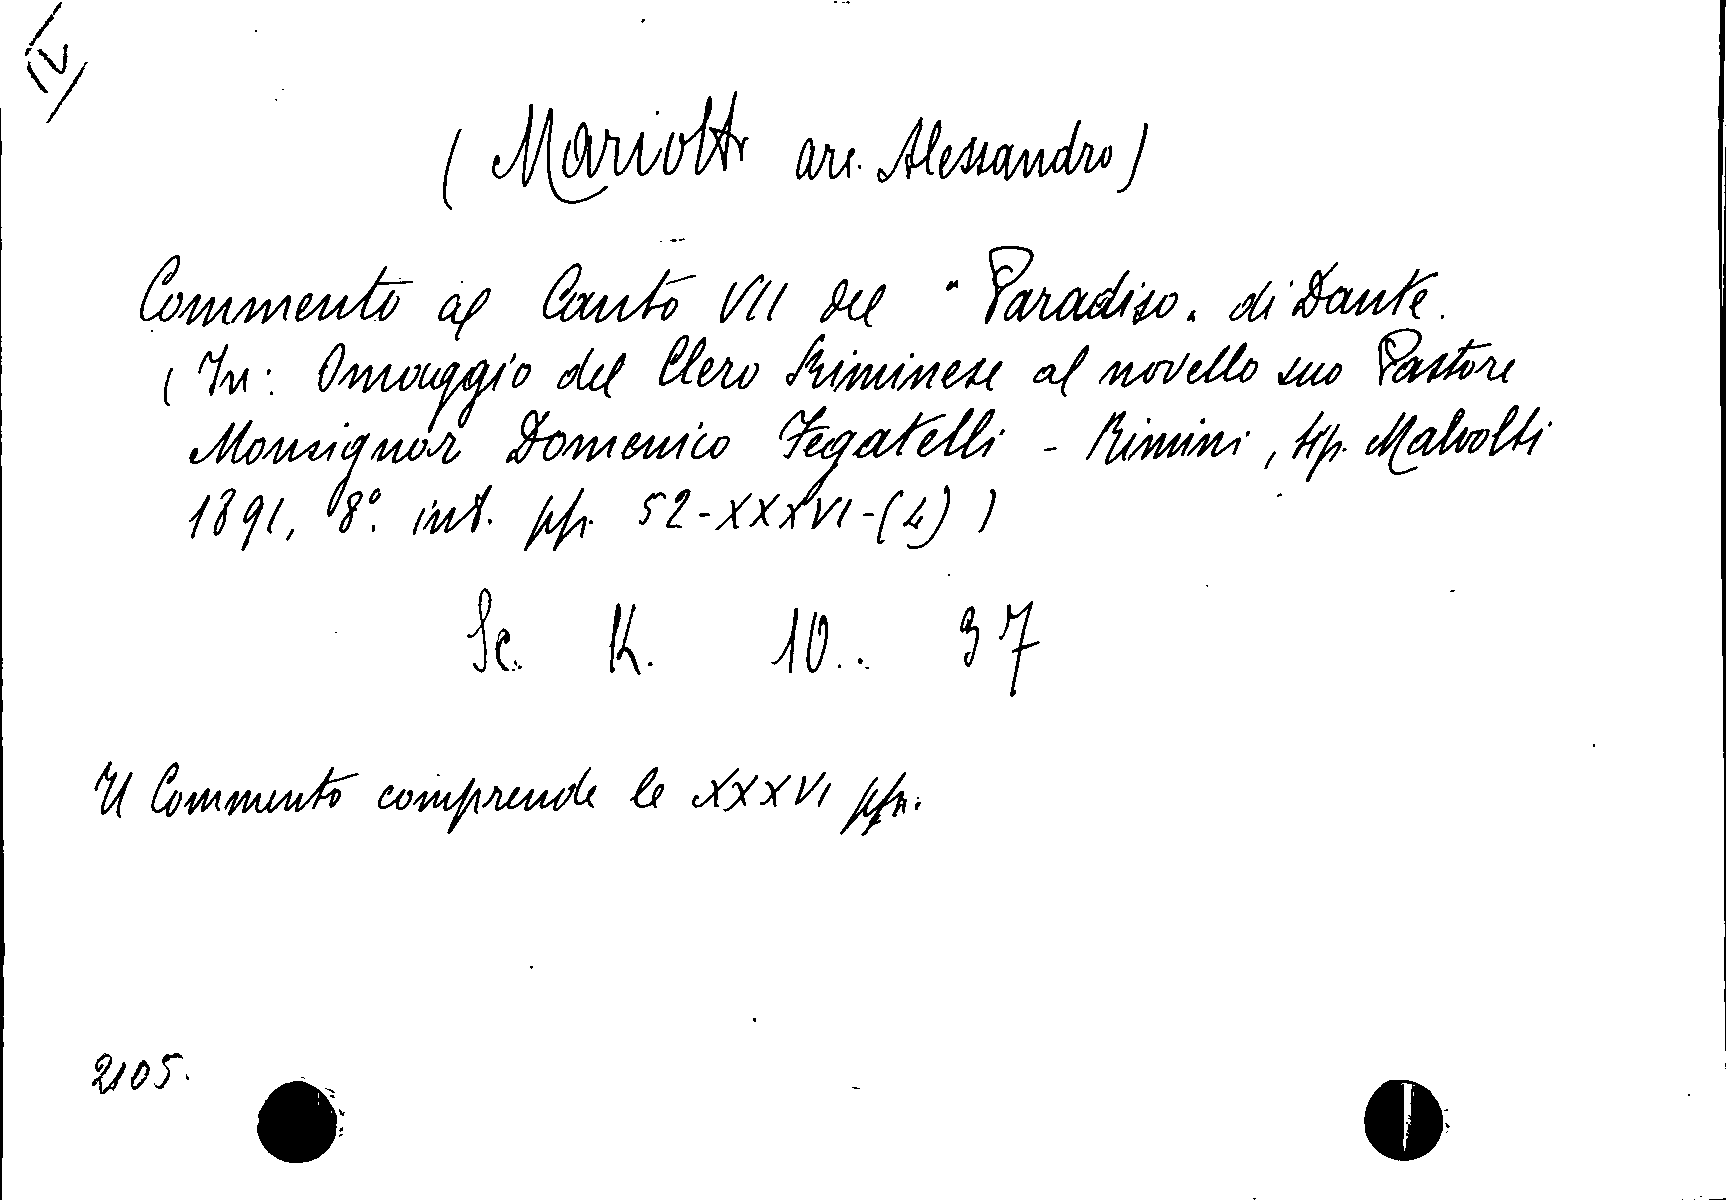 IV
(Mariotti arc. Alessandro)
Commento al Canto VII del "Paradiso" di Dante.
(In: Omaggio del Clero Riminese al novello suo Pastore
Monsignor Domenico Fegatelli - Rimini, tip. Malvolti
1891, 8°. int. pp. 52-XXXVI-(4))
Sc. K. 10.. 37
Il Commento comprende le XXXVI pp.
2105.